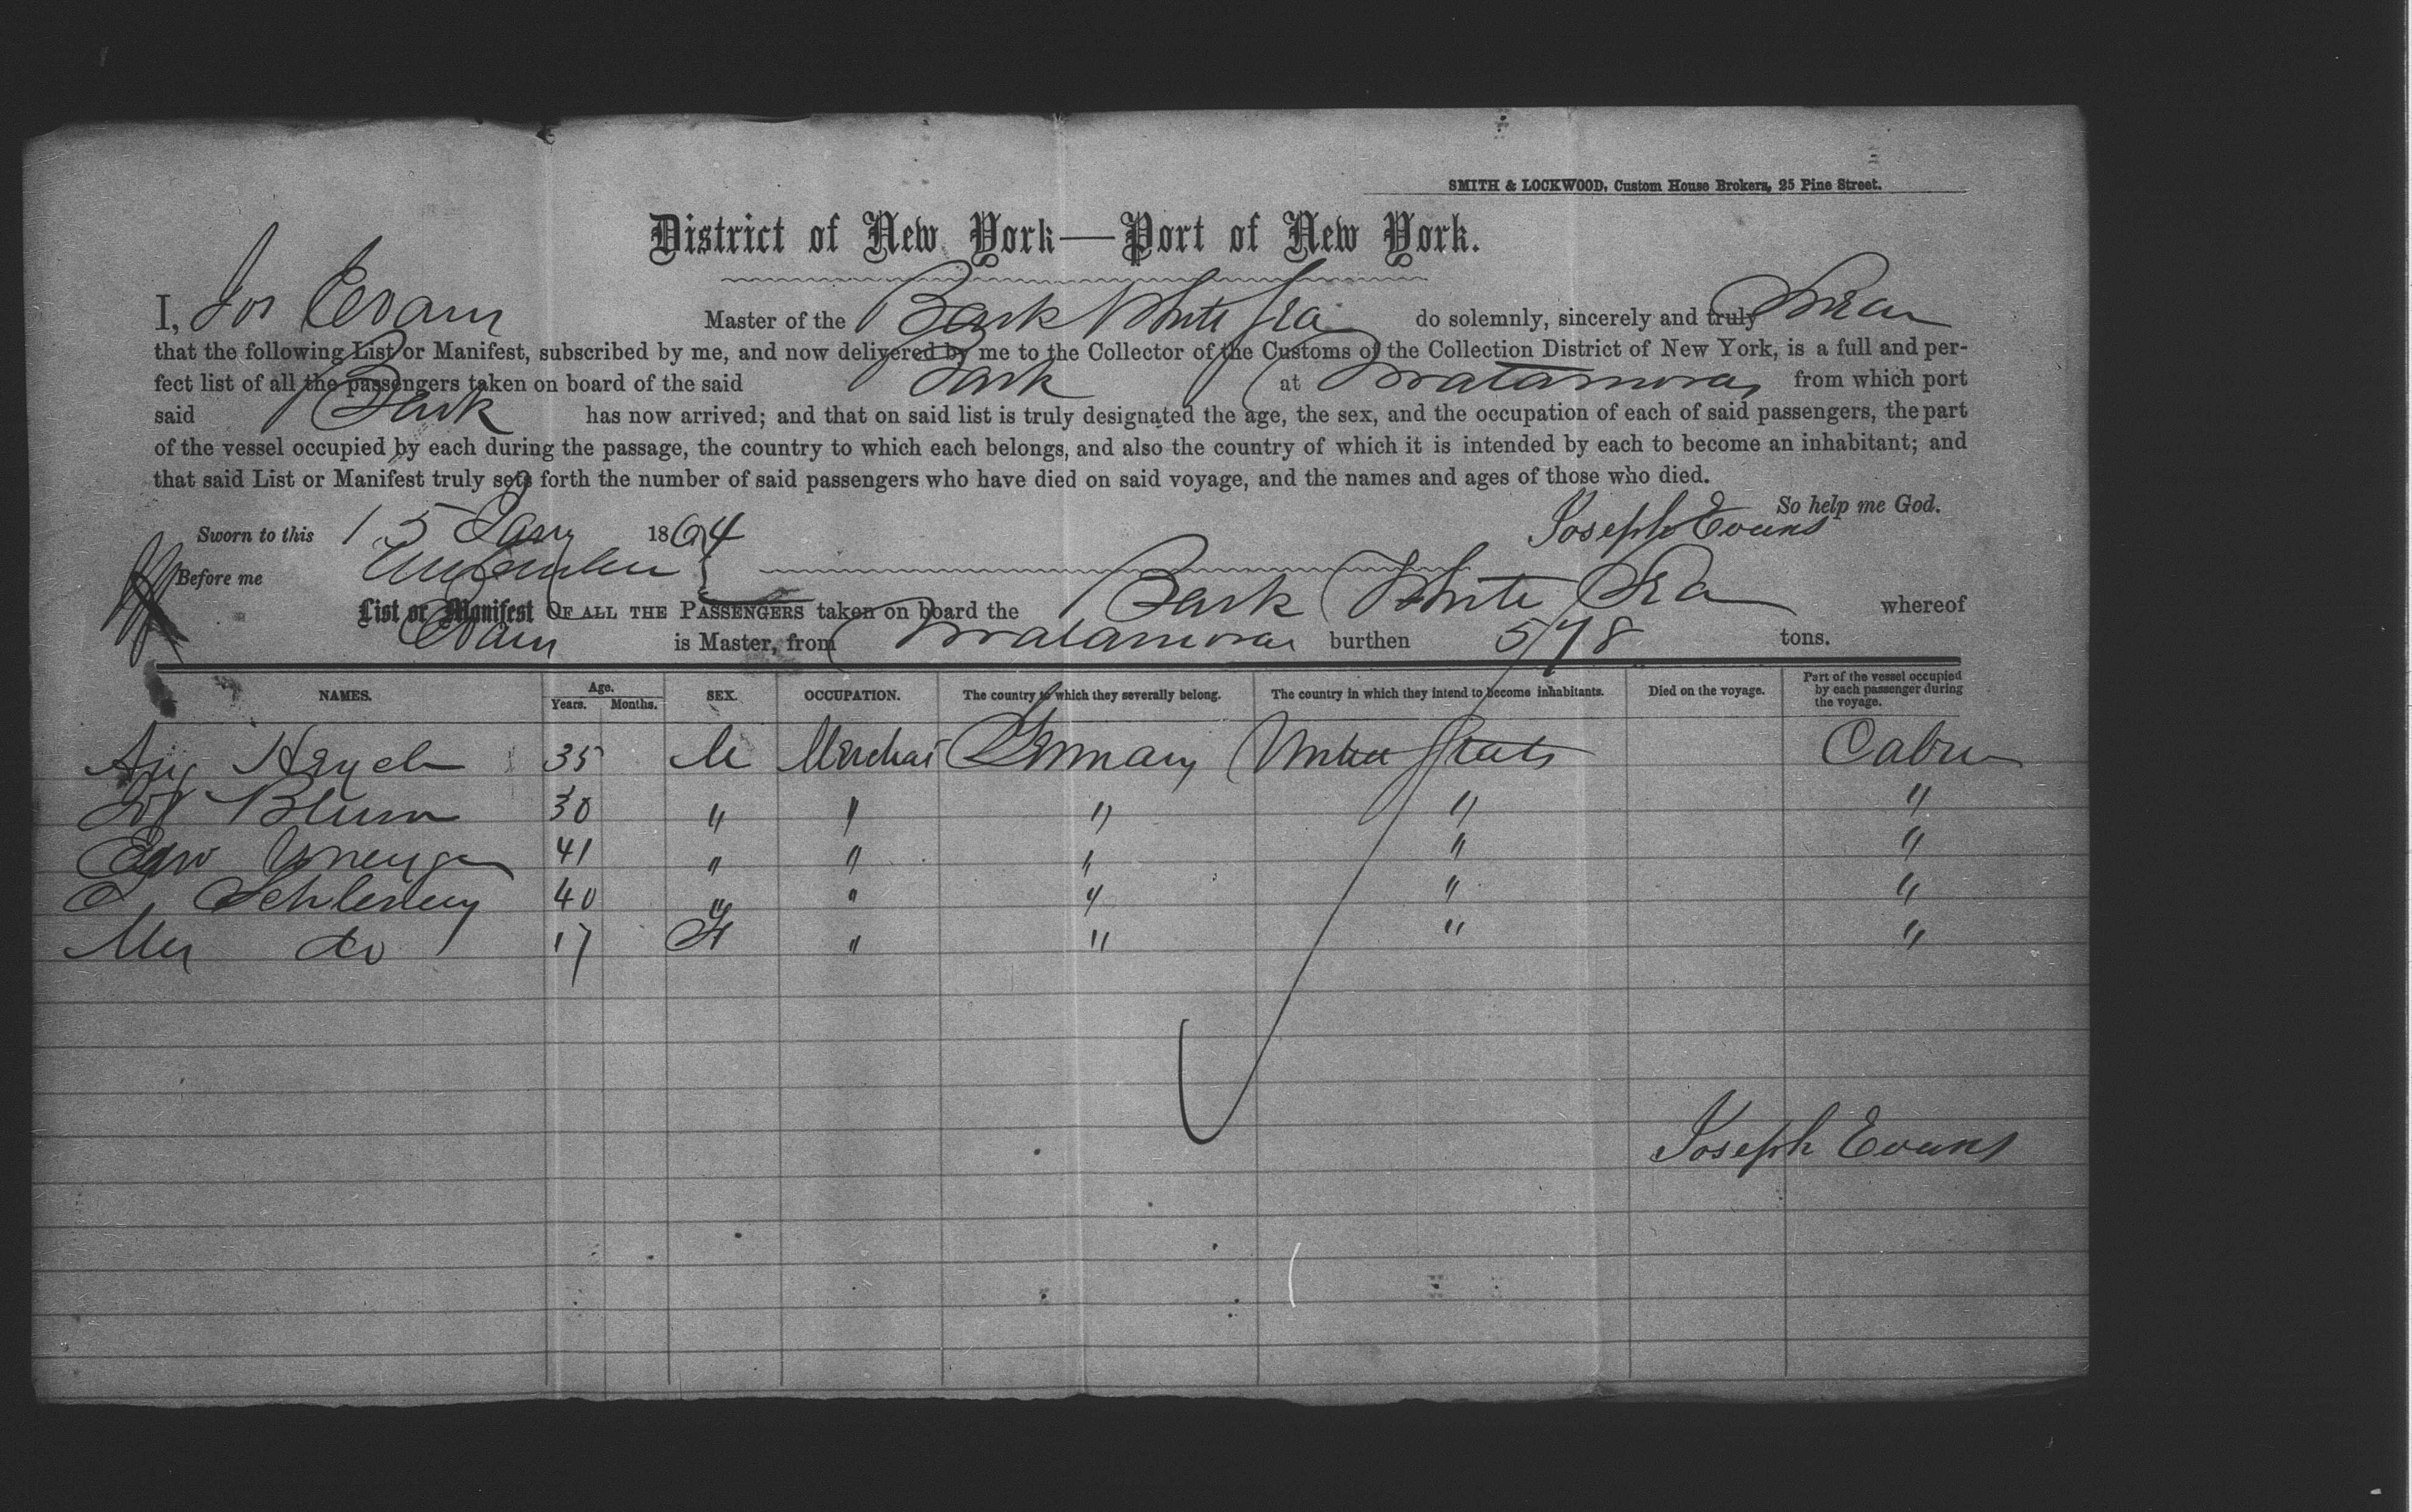 SMITH & LOCKWOOD, Custom House Brokers, 25 Pine Street.
District of New York—Port of New York.
I, Jos Evans Master of the Bark White Sea do solemnly, sincerely and truly Swear
that the following List or Manifest, subscribed by me, and now delivered by me to the Collector of the Customs of the Collection District of New York, is a full and per-
fect list of all the passengers taken on board of the said Bark at Matamoras from which port
said Bark has now arrived; and that on said list is truly designated the age, the sex, and the occupation of each of said passengers, the part
of the vessel occupied by each during the passage, the country to which each belongs, and also the country of which it is intended by each to become an inhabitant; and
that said List or Manifest truly sets forth the number of said passengers who have died on said voyage, and the names and ages of those who died.
So help me God.
Sworn to this 15 Jany 1864 Joseph Evans
Before me
List or Manifest OF ALL THE PASSENGERS taken on board the Bark White Sea whereof
Evans is Master, from Matamoras burthen 578 tons.
NAMES. Age. Years. Months. SEX. OCCUPATION. The country to which they severally belong. The country in which they intend to become inhabitants. Died on the voyage. Part of the vessel occupied by each passenger during the voyage.
Aug 35 M Merchat Germany United States Cabin
Blum 30 " " " " "
Edw 41 " " " " "
40 " " " " "
Mrs do 17 F " " " "
Joseph Evans